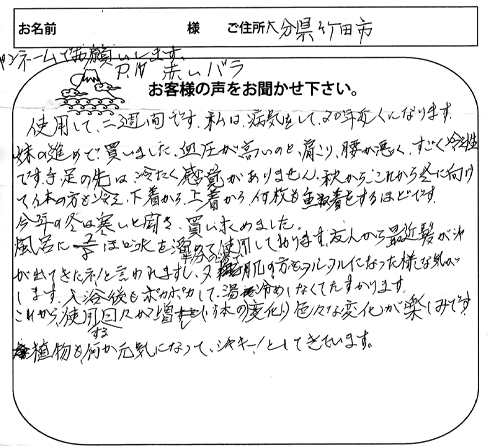 お名前 様 ご住所 大分県竹田市
ペンネームでお願いします。
P.N 赤いバラ
お客様の声をお聞かせ下さい。
使用して、二週間です。私は、病気をして、20年近くになります。
妹の進めで買いました。血圧が高いのと、肩こり、腰が悪く、すごく冷性
です。手足の先は、冷たく感覚がありません。秋からこれから冬に向け
て体の方も冷え、下着から、上着から何枚も重ね着をするほどです。
今年の冬は寒いと聞き、買い求めました。
風呂に ほど水を溜めて使用しております。友人から最近髪がツヤ
が出てきたネ!と言われますし、又 肌の方もツルツルになった様な気が
します。入浴後もポカポカして、湯冷めしなくてたすかります。
これから使用する日々が増すという体の変化り色々な変化が楽しみです
植物も何か元気になって、シャキ!としてきています。